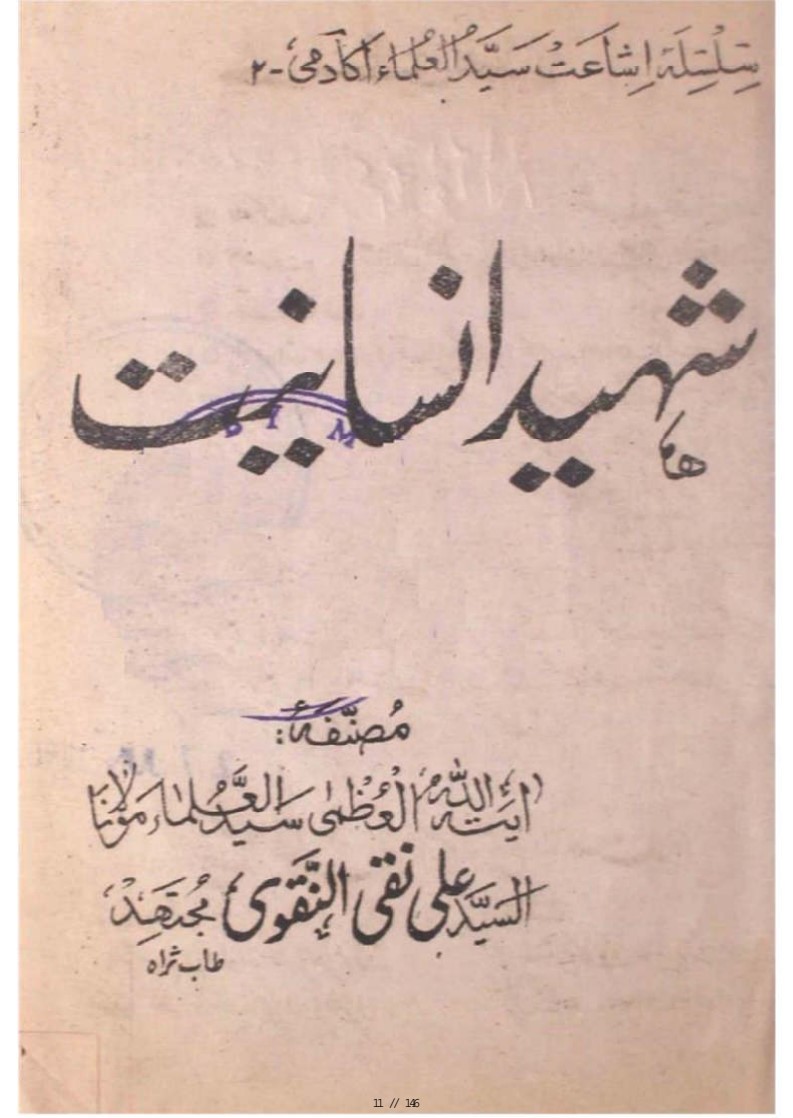 سِلْسِلَۂ اِشَاعَتْ سَیَّدُ العُلماء اکادمی - ۲
شہید انسانیت
مُصَنَّفہٗ:
اٰیَتہ اللّٰہ العُظمٰی سَیّدُ العُلَماء مَوْلانَا
السیّد علی نقی النَّقوی مُجتَھِدْ
طاب ثراہ
11 // 146